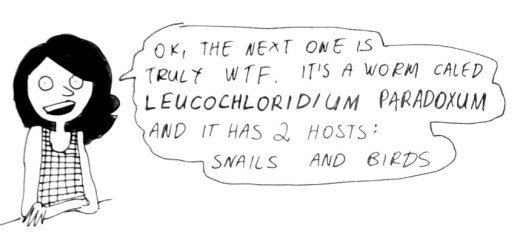 OK, THE NEXT ONE IS
TRULY WTF. IT'S A WORM CALED
LEUCOCHLORIDIUM PARADOXUM
AND IT HAS 2 HOSTS:
SNAILS AND BIRDS